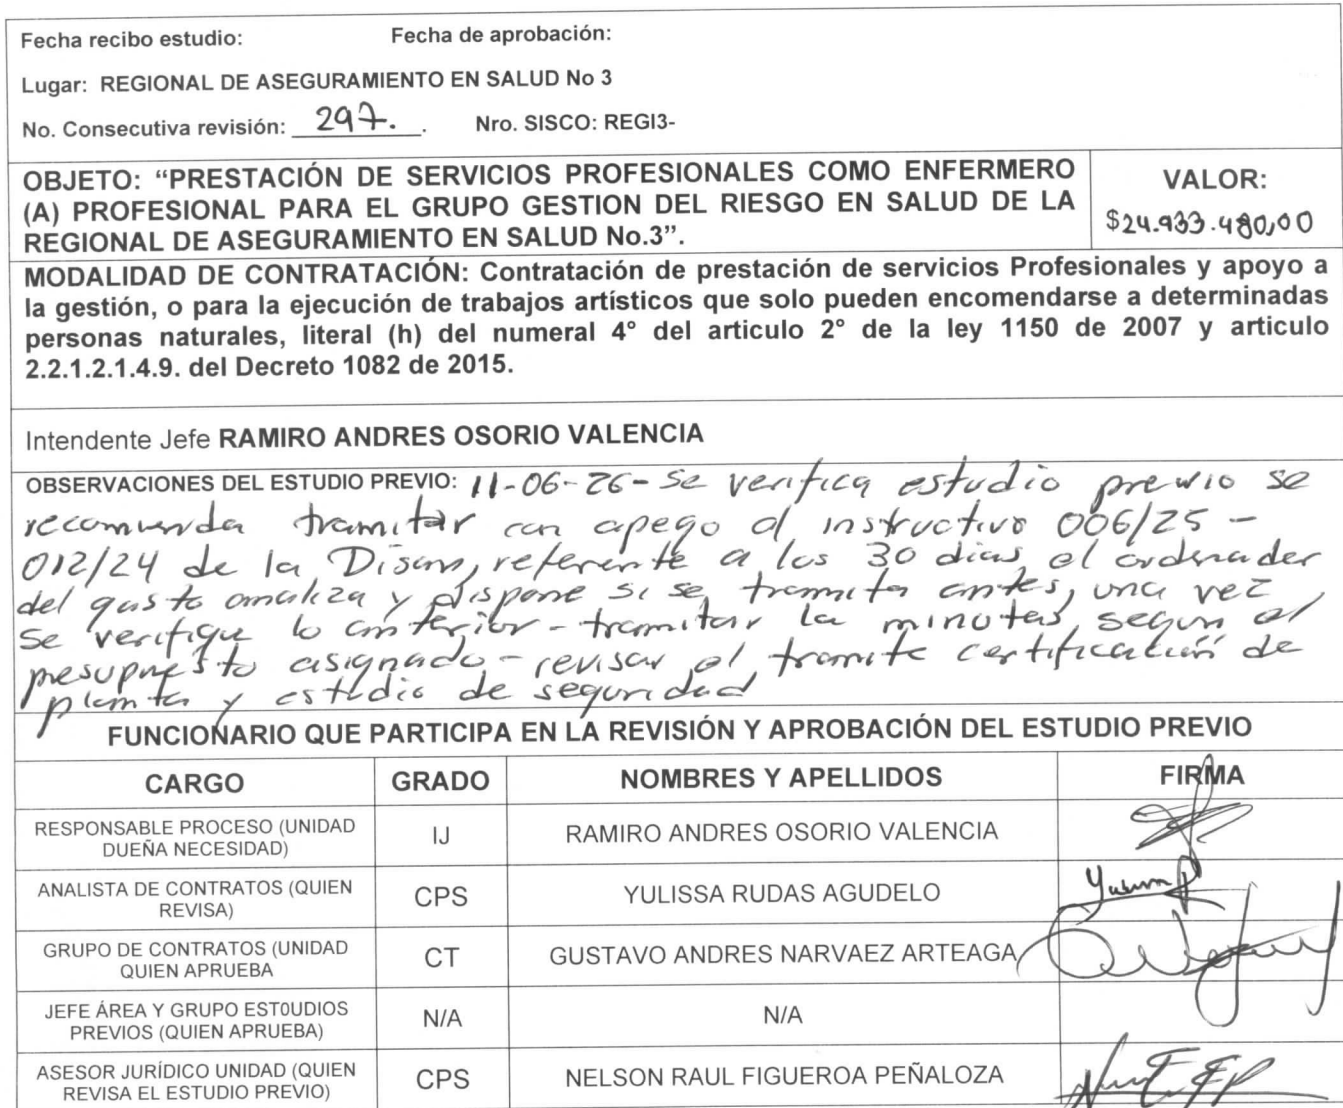 Fecha recibo estudio: Fecha de aprobación:
Lugar: REGIONAL DE ASEGURAMIENTO EN SALUD No 3
No. Consecutiva revisión: 297. . Nro. SISCO: REGI3-
OBJETO: “PRESTACIÓN DE SERVICIOS PROFESIONALES COMO ENFERMERO
(A) PROFESIONAL PARA EL GRUPO GESTION DEL RIESGO EN SALUD DE LA
REGIONAL DE ASEGURAMIENTO EN SALUD No.3”.
VALOR:
$24.933.480,00
MODALIDAD DE CONTRATACIÓN: Contratación de prestación de servicios Profesionales y apoyo a
la gestión, o para la ejecución de trabajos artísticos que solo pueden encomendarse a determinadas
personas naturales, literal (h) del numeral 4° del articulo 2° de la ley 1150 de 2007 y articulo
2.2.1.2.1.4.9. del Decreto 1082 de 2015.
Intendente Jefe RAMIRO ANDRES OSORIO VALENCIA
OBSERVACIONES DEL ESTUDIO PREVIO: 11-06-26- Se verifica estudio previo se
recomienda tramitar con apego al instructivo 006/25 -
012/24 de la Disan, referente a los 30 dias, el ordenador
del gasto analiza y dispone si se tramita antes, una vez
se verifique lo anterior - tramitar la minutas, segun el
presupuesto asignado - revisar el tramite certificación de
planta y estudio de seguridad
FUNCIONARIO QUE PARTICIPA EN LA REVISIÓN Y APROBACIÓN DEL ESTUDIO PREVIO
CARGO GRADO NOMBRES Y APELLIDOS FIRMA
RESPONSABLE PROCESO (UNIDAD
DUEÑA NECESIDAD) IJ RAMIRO ANDRES OSORIO VALENCIA
ANALISTA DE CONTRATOS (QUIEN
REVISA) CPS YULISSA RUDAS AGUDELO
GRUPO DE CONTRATOS (UNIDAD
QUIEN APRUEBA CT GUSTAVO ANDRES NARVAEZ ARTEAGA
JEFE ÁREA Y GRUPO EST0UDIOS
PREVIOS (QUIEN APRUEBA) N/A N/A
ASESOR JURÍDICO UNIDAD (QUIEN
REVISA EL ESTUDIO PREVIO) CPS NELSON RAUL FIGUEROA PEÑALOZA